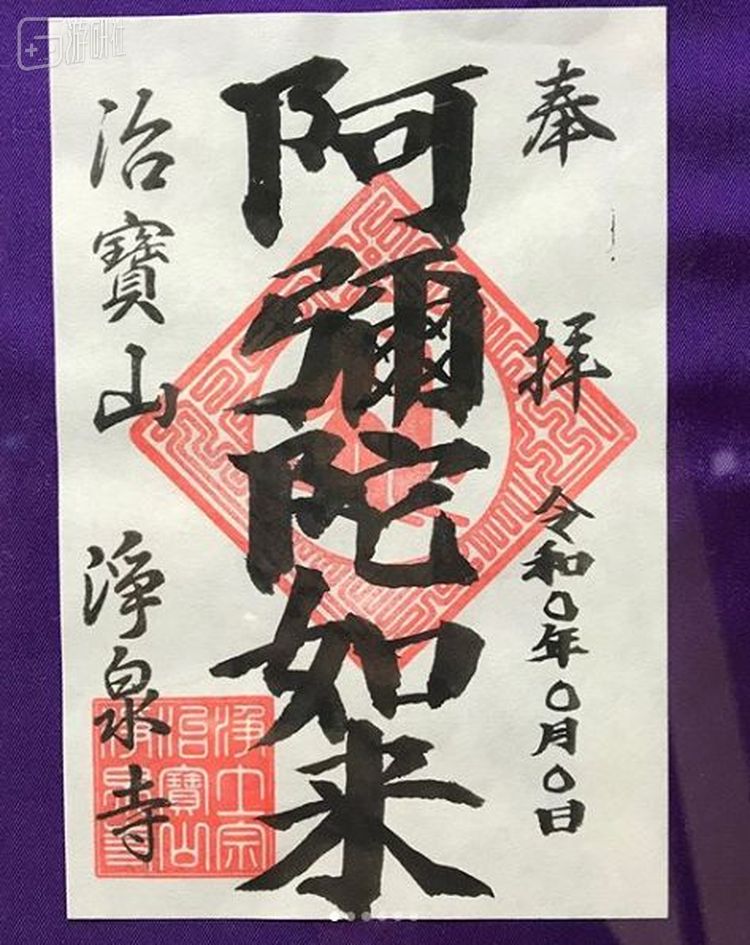 奉拝
令和〇年〇月〇日
阿彌陀如来
治寶山
淨泉寺
淨土宗
治寶山
淨泉寺
游研社